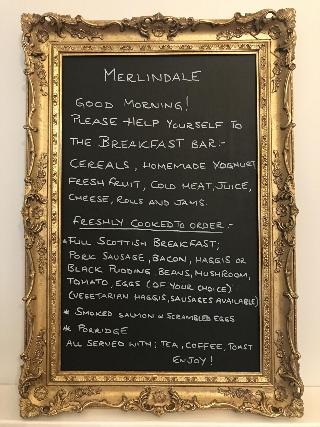 MERLINDALE
GOOD MORNING!
PLEASE HELP YOURSELF TO
THE BREAKFAST BAR:-
CEREALS, HOMEMADE YOGHURT
FRESH FRUIT, COLD MEAT, JUICE,
CHEESE, ROLLS AND JAMS.
FRESHLY COOKED TO ORDER:-
*FULL SCOTTISH BREAKFAST;
PORK SAUSAGE, BACON, HAGGIS OR
BLACK PUDDING BEANS, MUSHROOM,
TOMATO, EGGS (OF YOUR CHOICE)
(VEGETARIAN HAGGIS, SAUSAGES AVAILABLE)
* SMOKED SALMON & SCRAMBLED EGGS
* PORRIDGE
ALL SERVED WITH; TEA, COFFEE, TOAST
ENJOY!